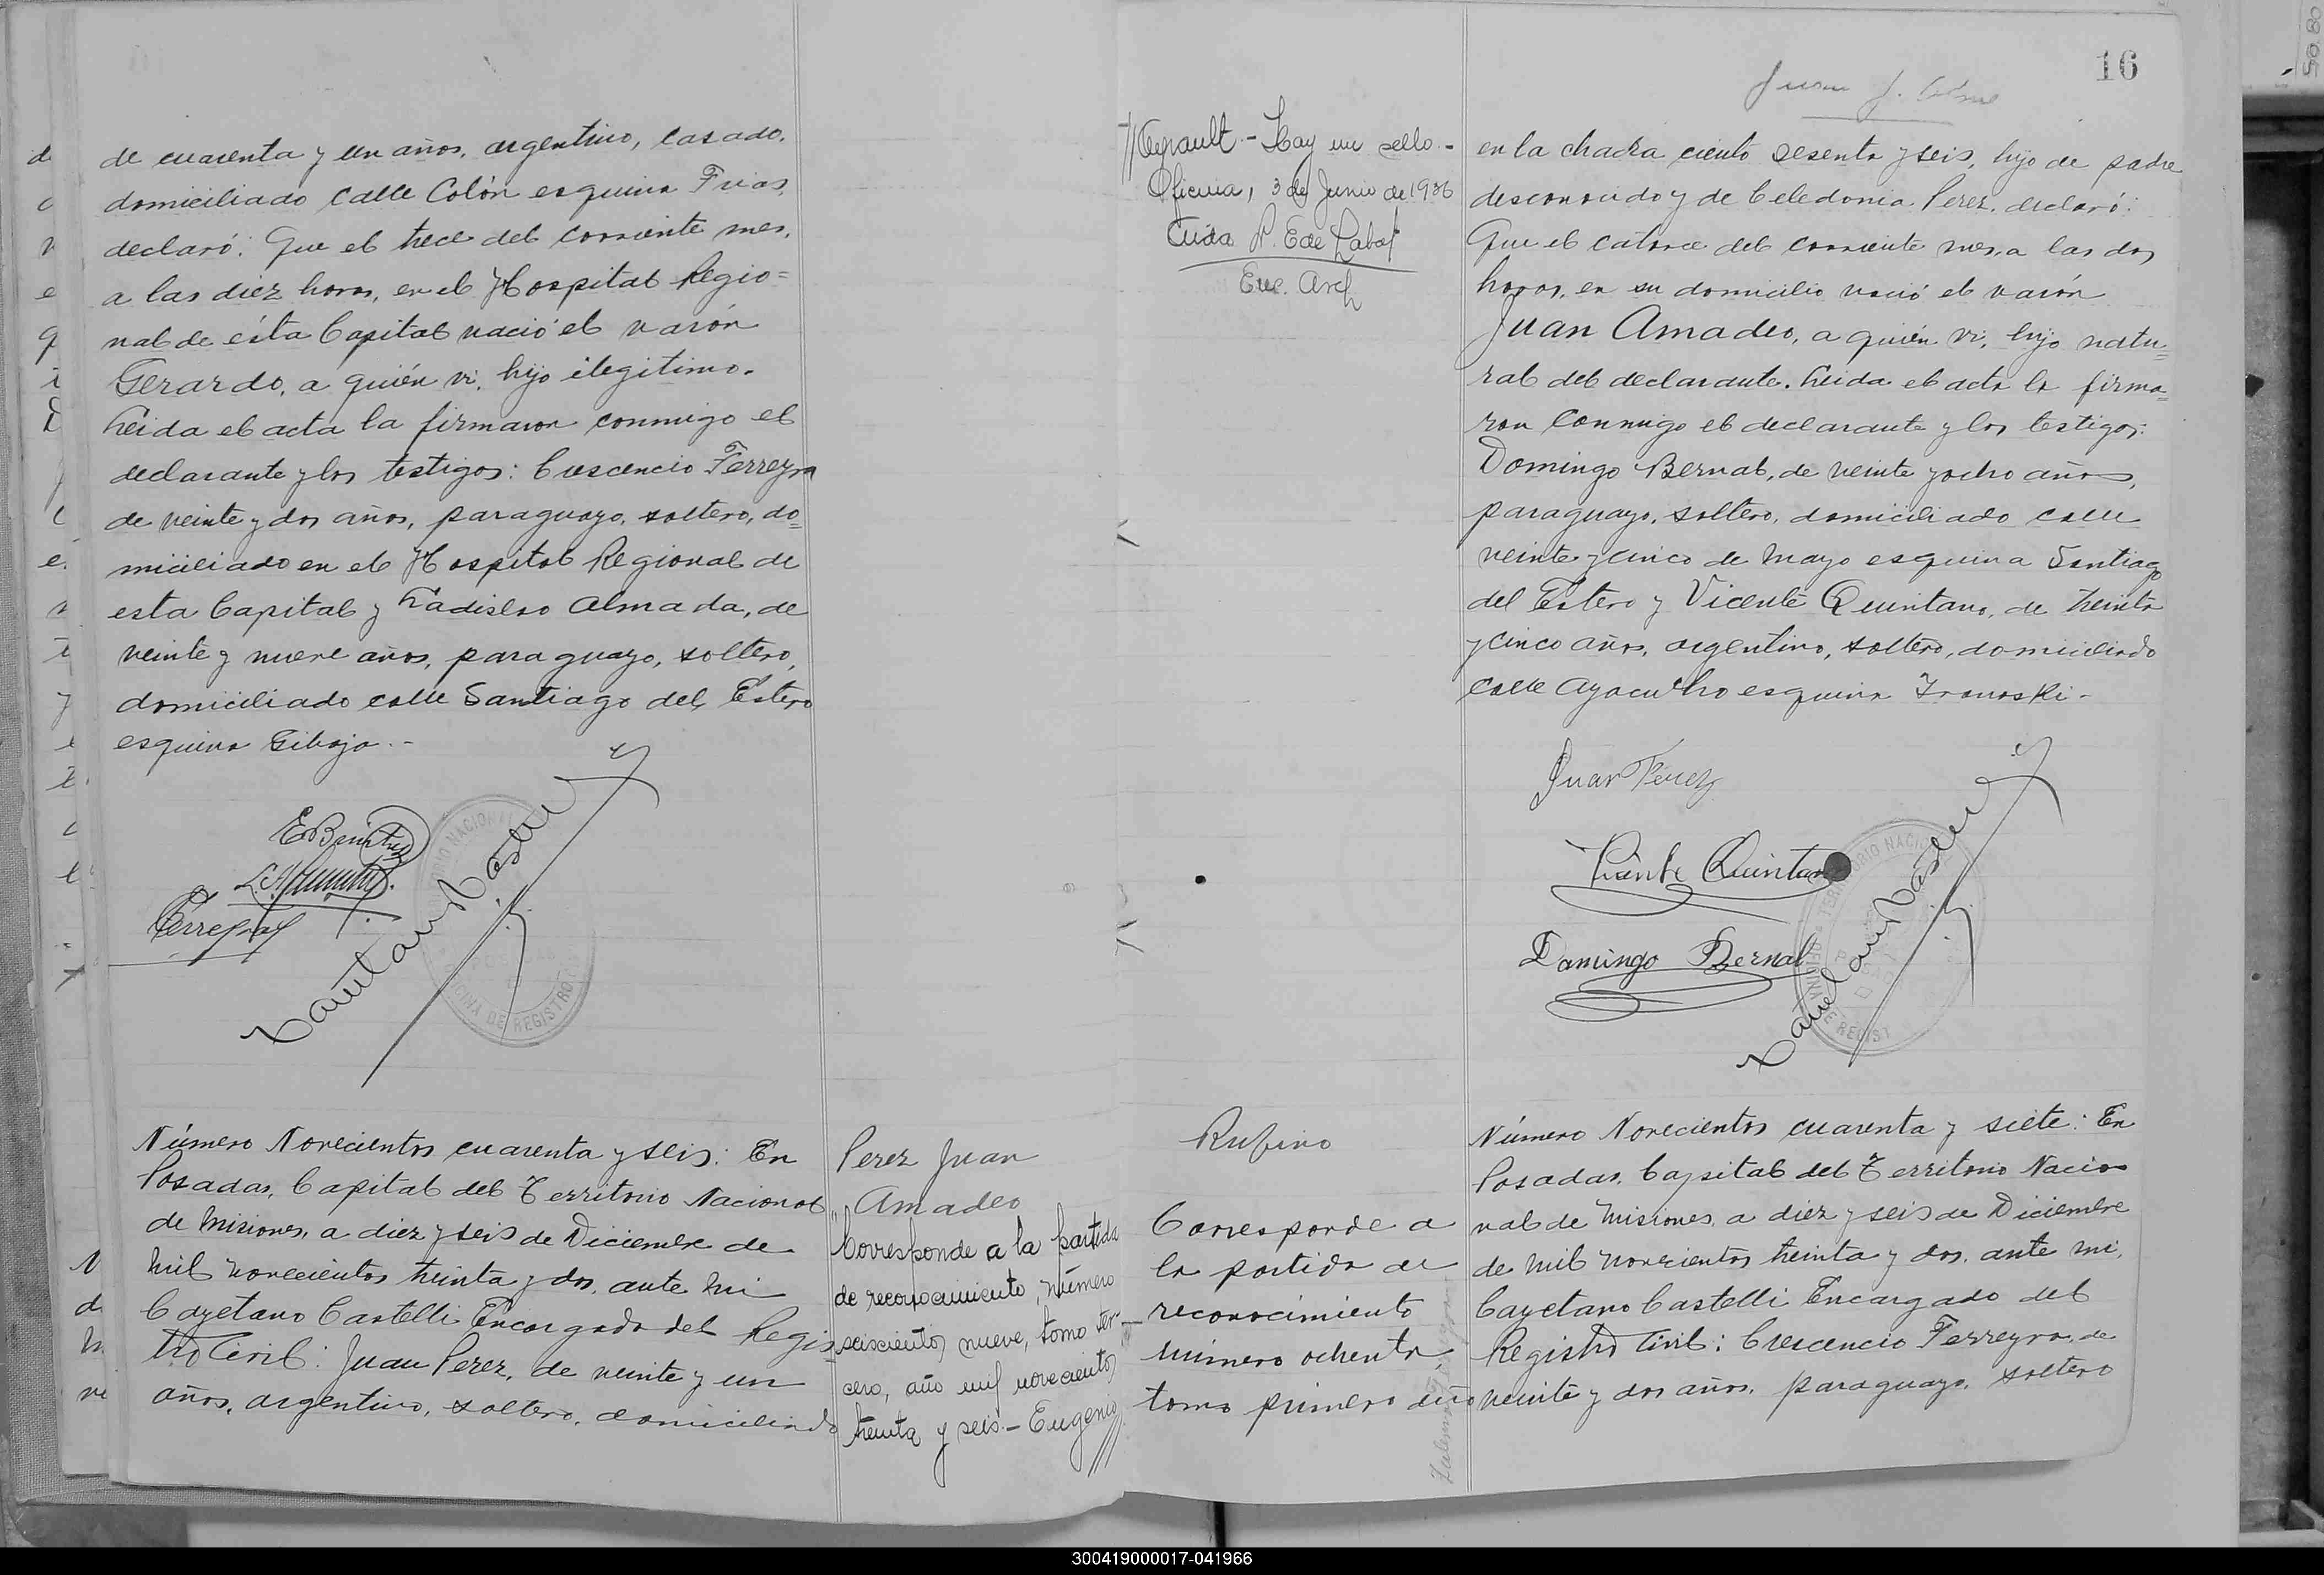 de cuarenta y un años, argentino, casado,
domiciliado calle Colón esquina Frias,
declaró: Que el trece del corriente mes,
a las diez horas, en el Hospital Regio=
nal de ésta Capital nació el varón
Gerardo, a quién vi, hijo ilegitimo.
Leida el acta la firmaron conmigo el
declarante y los testigos: Crescencio Ferreyra
de veinte y dos años, paraguayo, soltero, do=
miciliado en el Hospital Regional de
esta Capital y Ladislao Almada, de
veinte y nueve años, paraguayo, soltero,
domiciliado calle Santiago del Estero
esquina Gibaja.-
E Benitez
Ferreyra
POSADAS
OFICINA DE REGISTRO
Número Novecientos cuarenta y seis: En
Posadas, Capital del Territorio Nacional
de Misiones, a diez y seis de Diciembre de
mil novecientos treinta y dos, ante mi
Cayetano Castelli Encargado del Regis
tro Civil: Juan Perez, de veinte y un
años, argentino, soltero, domiciliado
Perez Juan
Amadeo
"Corresponde a la partida
de reconocimiento, número
seiscientos nueve, tomo ter-
cero, año mil novecientos
treinta y seis.- Eugenio
16
Juan J.
- Hay un sello.-
Oficina, 3 de Junio de 1936
Enc. Arch
en la chacra ciento sesenta y seis, hijo de padre
desconocido y de Celedonia Perez, declaró:
Que el catorce del corriente mes, a las dos
horas, en su domicilio nació el varón
Juan Amadeo, a quién vi, hijo natu=
ral del declarante. Leida el acta la firma=
ron conmigo el declarante y los testigos:
Domingo Bernal, de veinte y ocho años,
paraguayo, soltero, domiciliado calle
veinte y cinco de Mayo esquina Santiago
del Estero y Vicente Quintana, de treinta
y cinco años, argentino, soltero, domiciliado
calle Ayacucho esquina Tranoski-
Juan Perez
Vicente Quintana
Domingo Bernal
Rufino
Corresponde a
la partida de
reconocimiento
número ochenta,
tomo primero año
Número Novecientos cuarenta y siete: En
Posadas, Capital del Territorio Nacio
nal de Misiones, a diez y seis de Diciembre
de mil novecientos treinta y dos, ante mi,
Cayetano Castelli Encargado del
Registro Civil: Crescencio Ferreyra, de
veinte y dos años, paraguayo, soltero
300419000017-041966